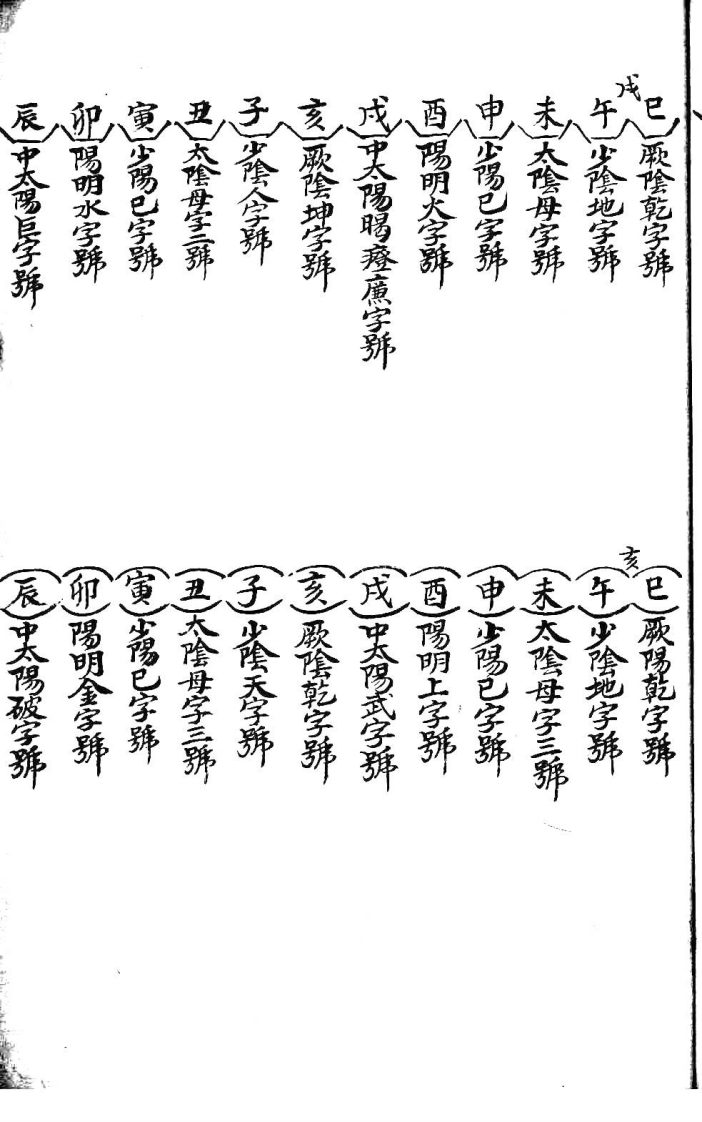 戌
巳 厥陰乾字號
午 少陰地字號
未 太陰母字號
申 少陽巳字號
酉 陽明火字號
戌 中太陽暍痙廉字號
亥 厥陰坤字號
子 少陰人字號
丑 太陰母字二號
寅 少陽巳字號
卯 陽明水字號
辰 中太陽巨字號
亥
巳 厥陽乾字號
午 少陰地字號
未 太陰母字三號
申 少陽巳字號
酉 陽明上字號
戌 中太陽武字號
亥 厥陰乾字號
子 少陰天字號
丑 太陰母字三號
寅 少陽巳字號
卯 陽明金字號
辰 中太陽破字號